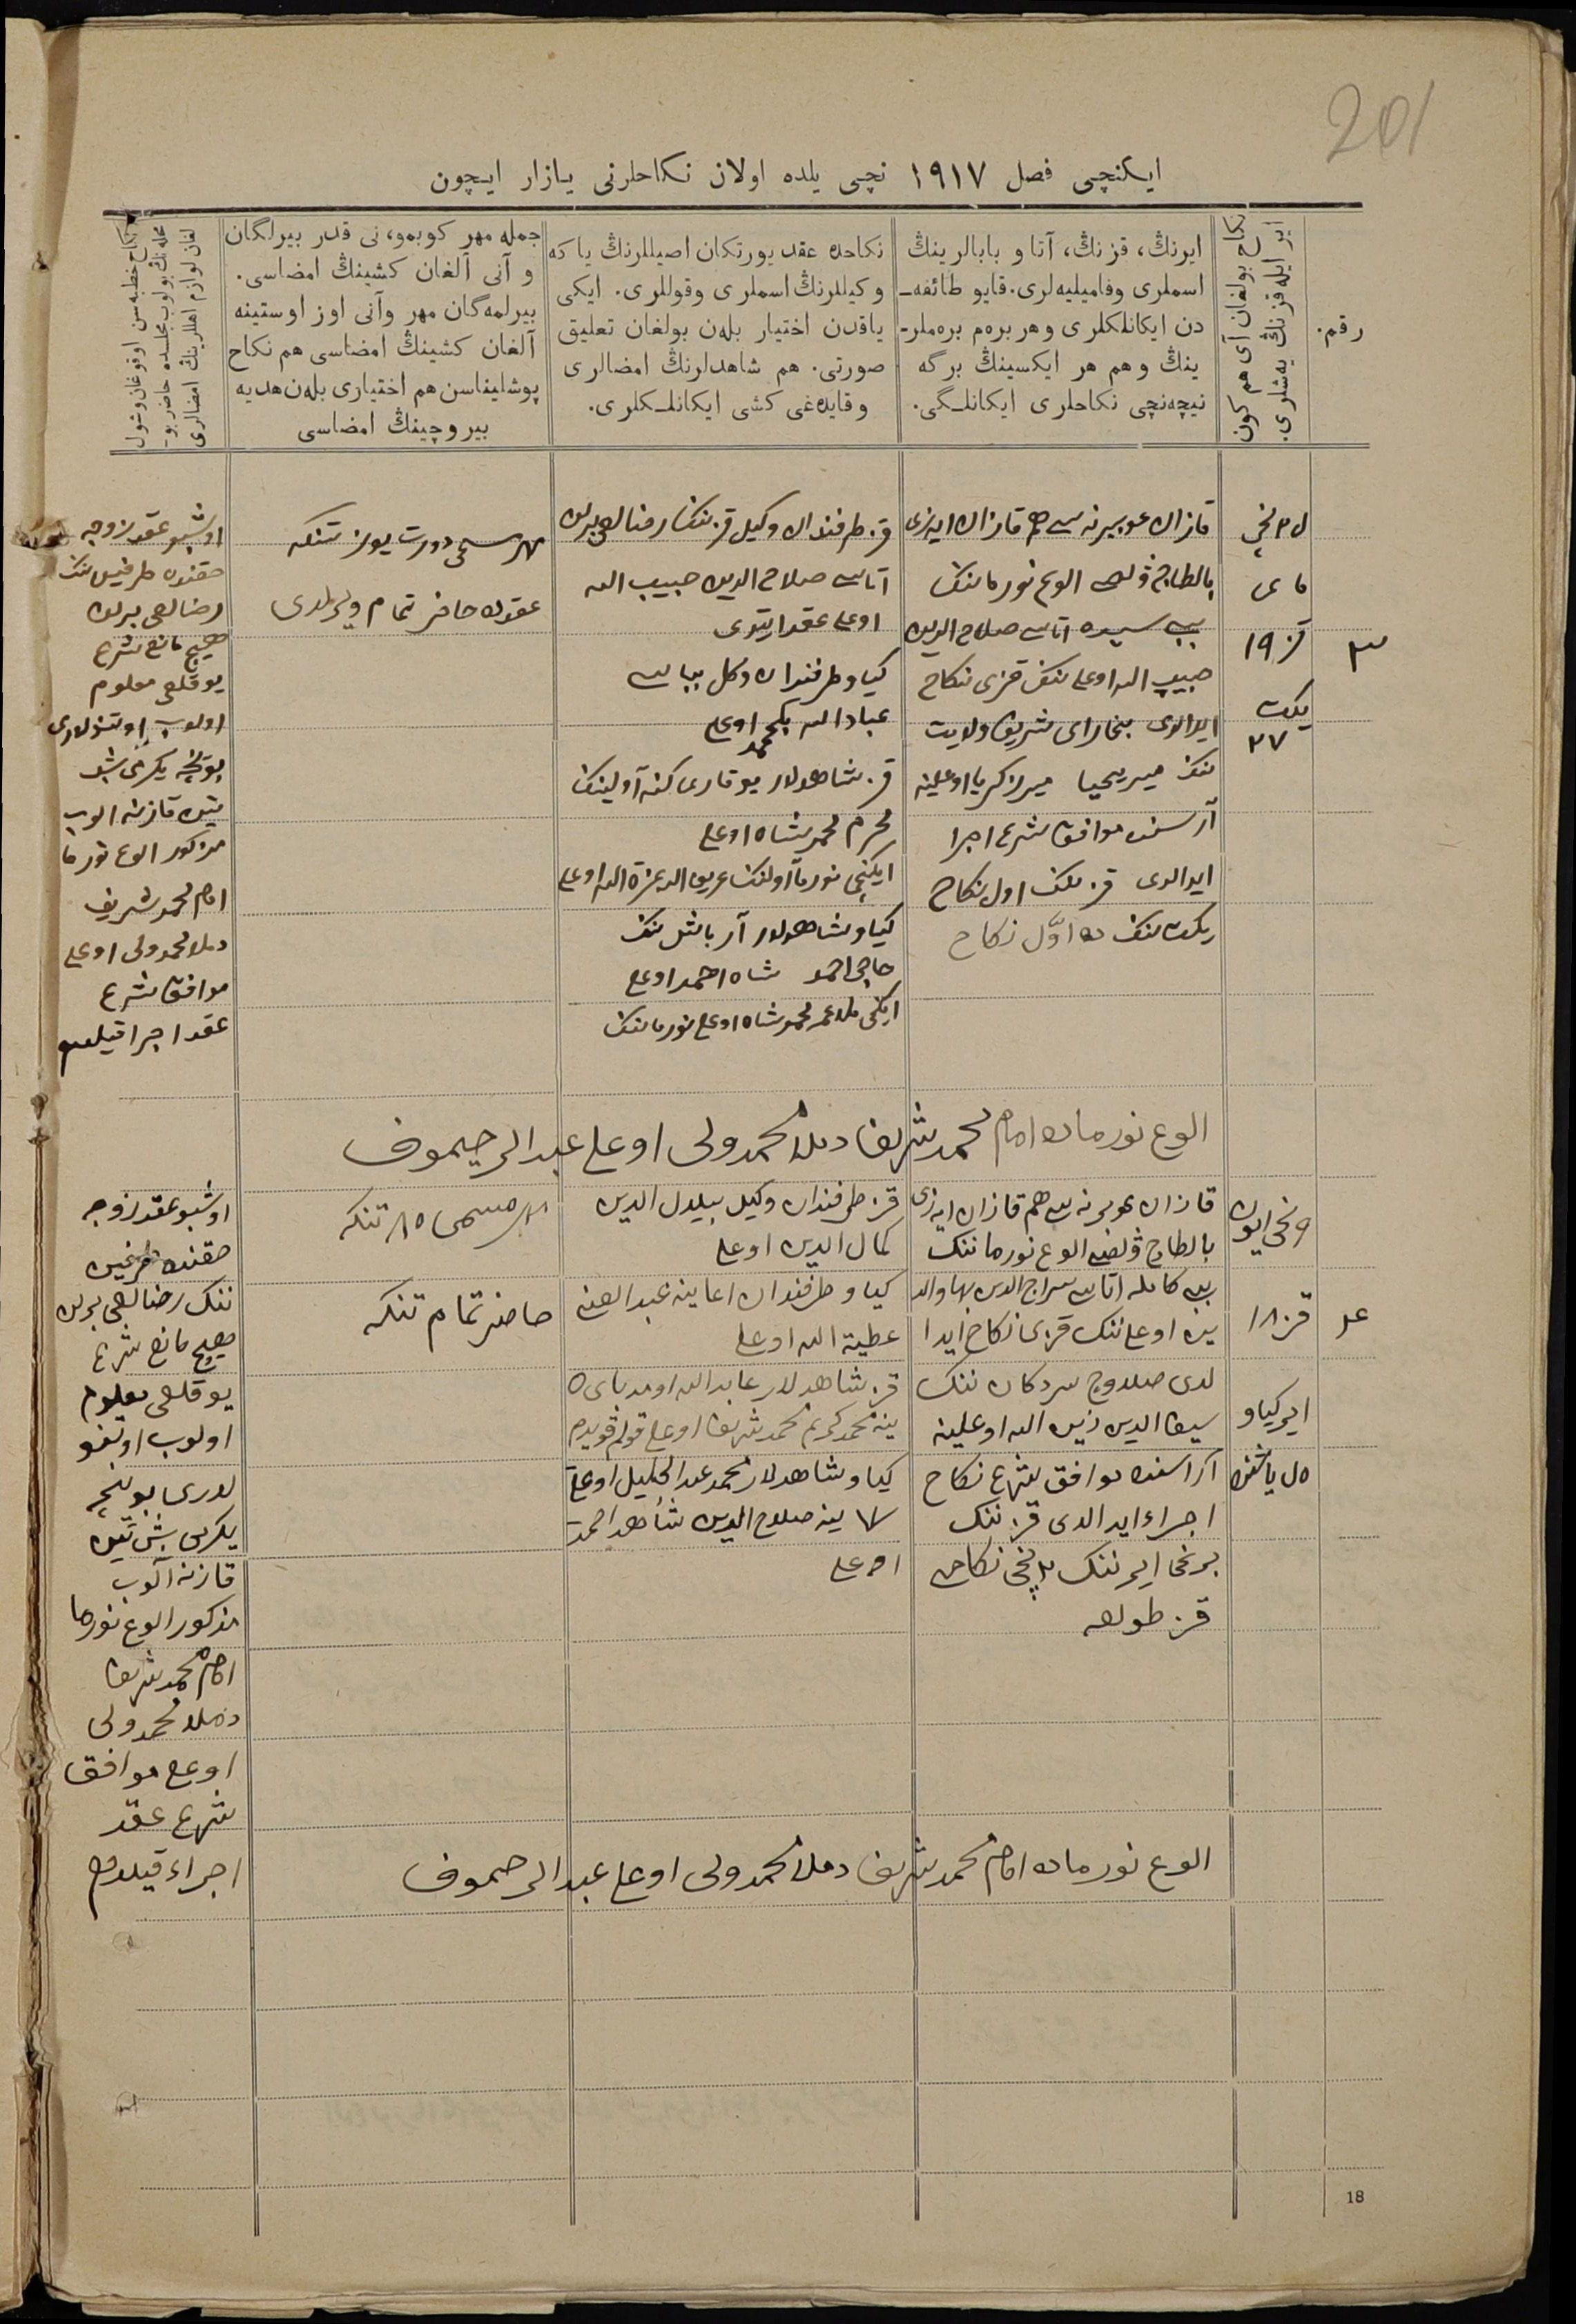 201
ایکنچی فصل ١٩١٧ نچی یلده اولان نکاحلرنی یازار ایچون
رقم.
نکاح بولغان آی هم کون
ایر ایله قزنڭ یه‌شلری.
ایرنڭ، قزنڭ، آتا و بابالرینڭ
اسملری وفامیلیه‌لری. قایو طائفه‌ـ
دن ایکانلکلری وهر بره‌م بره‌ملرـ
ینڭ وهم هر ایکسینڭ برگه
نیچه‌نچی نکاحلری ایکانلـگی.
نکاحده عقد یورتکان اصیللرنڭ یا که
وکیللرنڭ اسملری وقوللری. ایکی
یاقدن اختیار بله‌ن بولغان تعلیق
صورتی. هم شاهدلرنڭ امضالری
وقایده‌غی کشی ایکانلـکلری.
جمله مهر کوبمو، نی قدر بیرلگان
و آنی آلغان کشینڭ امضاسی.
بیرلمه‌گان مهر وآنی اوز اوستینه
آلغان کشینڭ امضاسی هم نکاح
پوشلیناسن هم اختیاری بله‌ن هدیه
بیروچینڭ امضاسی
نکاح خطبه‌سن اوقوغان وشول
محله‌نڭ بولوب مجلسده حاضر بوـ
لغان لوازم اهللرینڭ امضالری
٣
مای
قز ١٩
یکت
٢٧
قازان غوبیرنه سی هم قازان ایزی
الوغ نورمانڭ
آتاسی صلاح الدین
حبیب الله اوغلی ننک قزی نکاح
ایدالدی بخارای شریف ولایت
ننک میریحیا میرزکریا اوغلینه
آرسنده موافق شرع اجرا
ایدالدی قزننک اول نکاح
یکت ننک ده اوّل نکاح
قز طرفندان وکیل قزننک رضالغی برلن
آتاسی صلاح الدین حبیب الله
اوغلی عقد ایتدی
کیاو طرفندان وکیل
عبادالله بکمحمد اوغلی
قز شاهدلر
محرم محمدشاه اوغلی
ایکنچی نورما
کیاو شاهدلر آر باش ننک
حاجی احمد شاه احمد اوغلی
ایکنچی ملا عمر محمدشاه اوغلی نورماننک
مهر مسمی دورت یوز تنکه
عقدده حاضر تمام ویرلدی
اوشبو عقد زوجه
حقنده طرفین ننک
رضالغی برلن
هیچ مانع شرع
یوقلغی معلوم
اولوب اوتنولاری
بوینچه یکرمی بش
تین قازنه آلوب
مذکور الوغ نورما
امام محمد شریف
دملا محمدولی اوغلی
موافق شرع
عقد اجرا قیلدم
الوغ نورما ده امام محمد شریف دملا محمدولی اوغلی عبدالرحیموف
٤
٩نچی ایون
قز ١٨
ایر کیاو
یاشنده
قازان غوبیرنه سی هم قازان ایزی
الوغ نورماننک
بی بی کامله آتاسی سراج الدین بهاوالد
ین اوغلی ننک قزی نکاح ایدا
لدی
سیف الدین زین الله اوغلینه
آراسنده موافق شرع نکاح
اجراء ایدالدی قزننک
برنچی ایرننک ٢نچی نکاحی
قز طوله
قز طرفندان وکیل بیلال الدین
کمال الدین اوغلی
کیاو طرفندان عبدالغنی
عطیة الله اوغلی
قز شاهدلار
ینه محمد کریم محمد شریف اوغلی قولم قویدم
کیاو شاهدلار محمد عبدالجلیل اوغلی
ینه صلاح الدین شاهد احمد
اوغلی
مهر مسمی تنکه
حاضر تمام تنکه
اوشبو عقد زوجه
حقنده طرفین
ننک رضالغی برلن
هیچ مانع شرع
یوقلغی معلوم
اولوب اوتنو
لاری بوینچه
یکرمی بش تین
قازنه آلوب
مذکور الوغ نورما
امام محمد شریف
دملا محمدولی
اوغلی موافق
شرع عقد
اجراء قیلدم
الوغ نورما ده امام محمد شریف دملا محمدولی اوغلی عبدالرحیموف
18